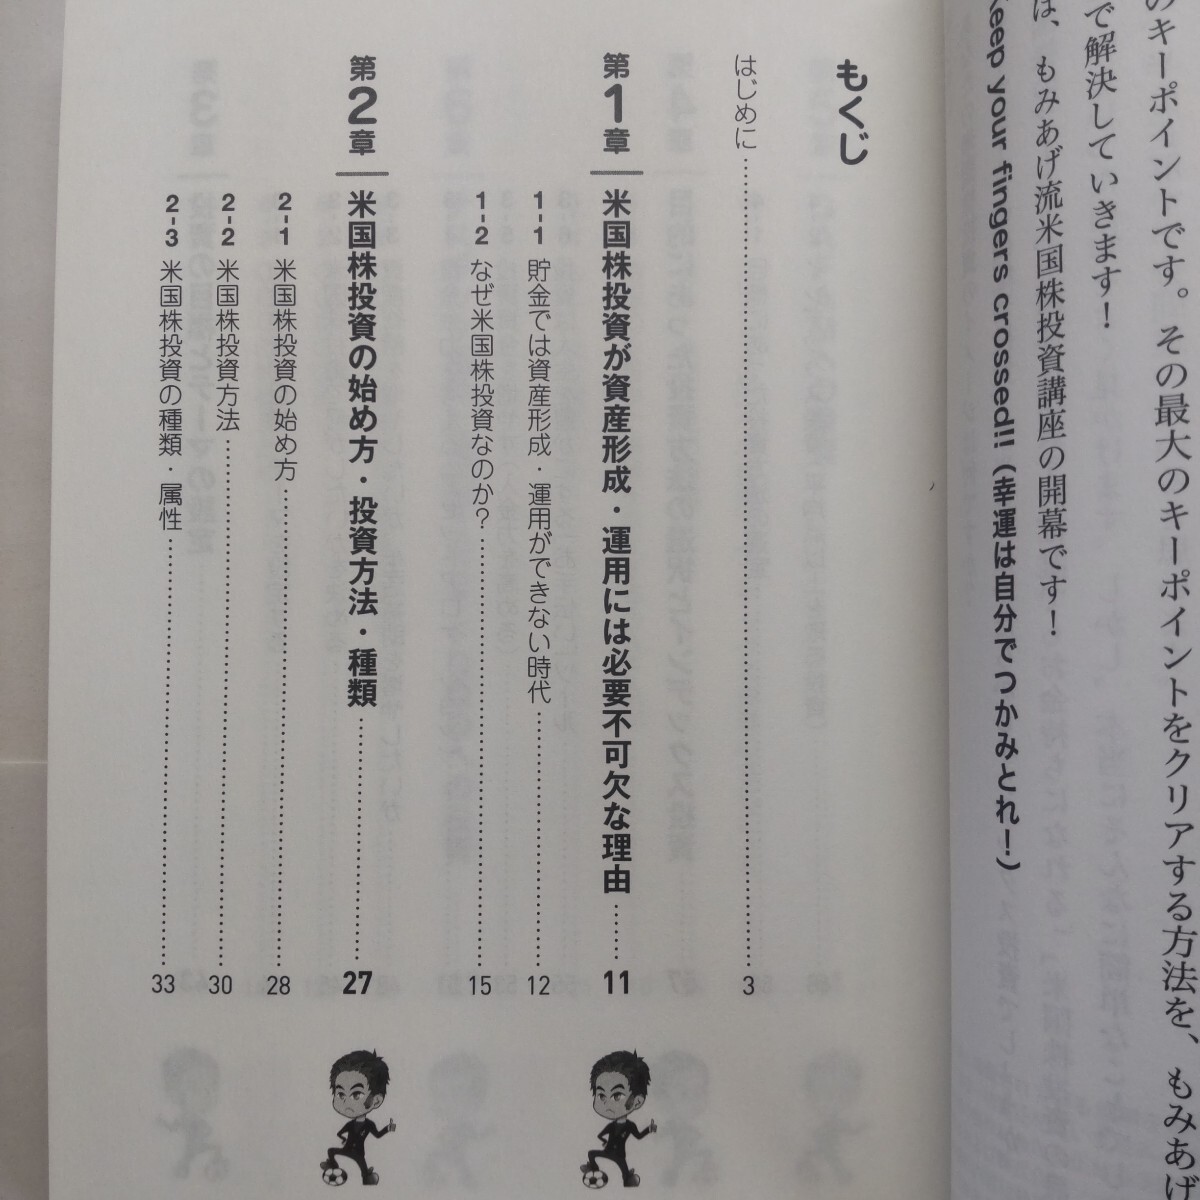 のキーポイントです。その最大のキーポイントをクリアする方法を、もみあげ
で解決していきます！
は、もみあげ流米国株投資講座の開幕です！
Keep your fingers crossed!!（幸運は自分でつかみとれ！）
もくじ
はじめに 3
第1章 米国株投資が資産形成・運用には必要不可欠な理由 11
1-1 貯金では資産形成・運用ができない時代 12
1-2 なぜ米国株投資なのか？ 15
第2章 米国株投資の始め方・投資方法・種類 27
2-1 米国株投資の始め方 28
2-2 米国株投資方法 30
2-3 米国株投資の種類・属性 33